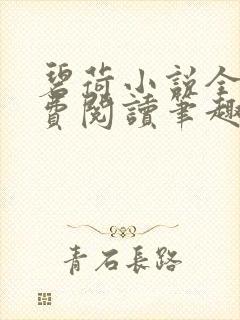 碧荷小说全
费閱讀筆趣
青石長路